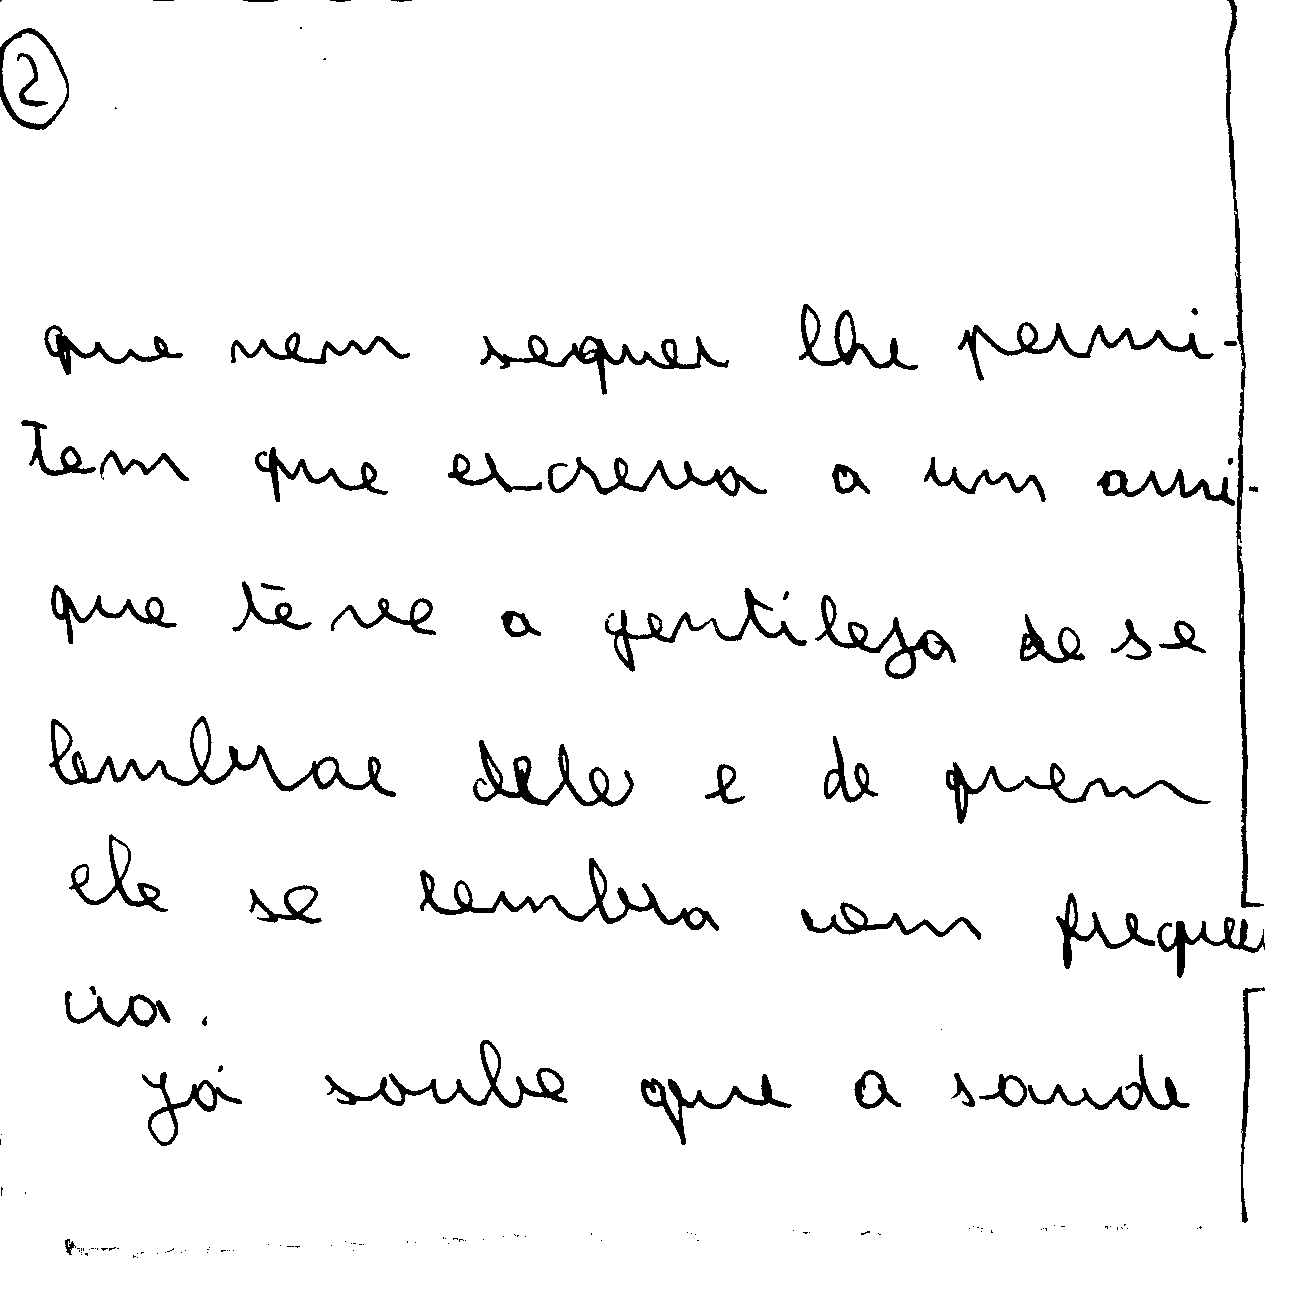 2
que nem sequer lhe permi-
tem que escreva a um ami-
que teve a gentileza de se
lembrar dele e de quem
ele se lembra com frequên
cia.
Já soube que a saude